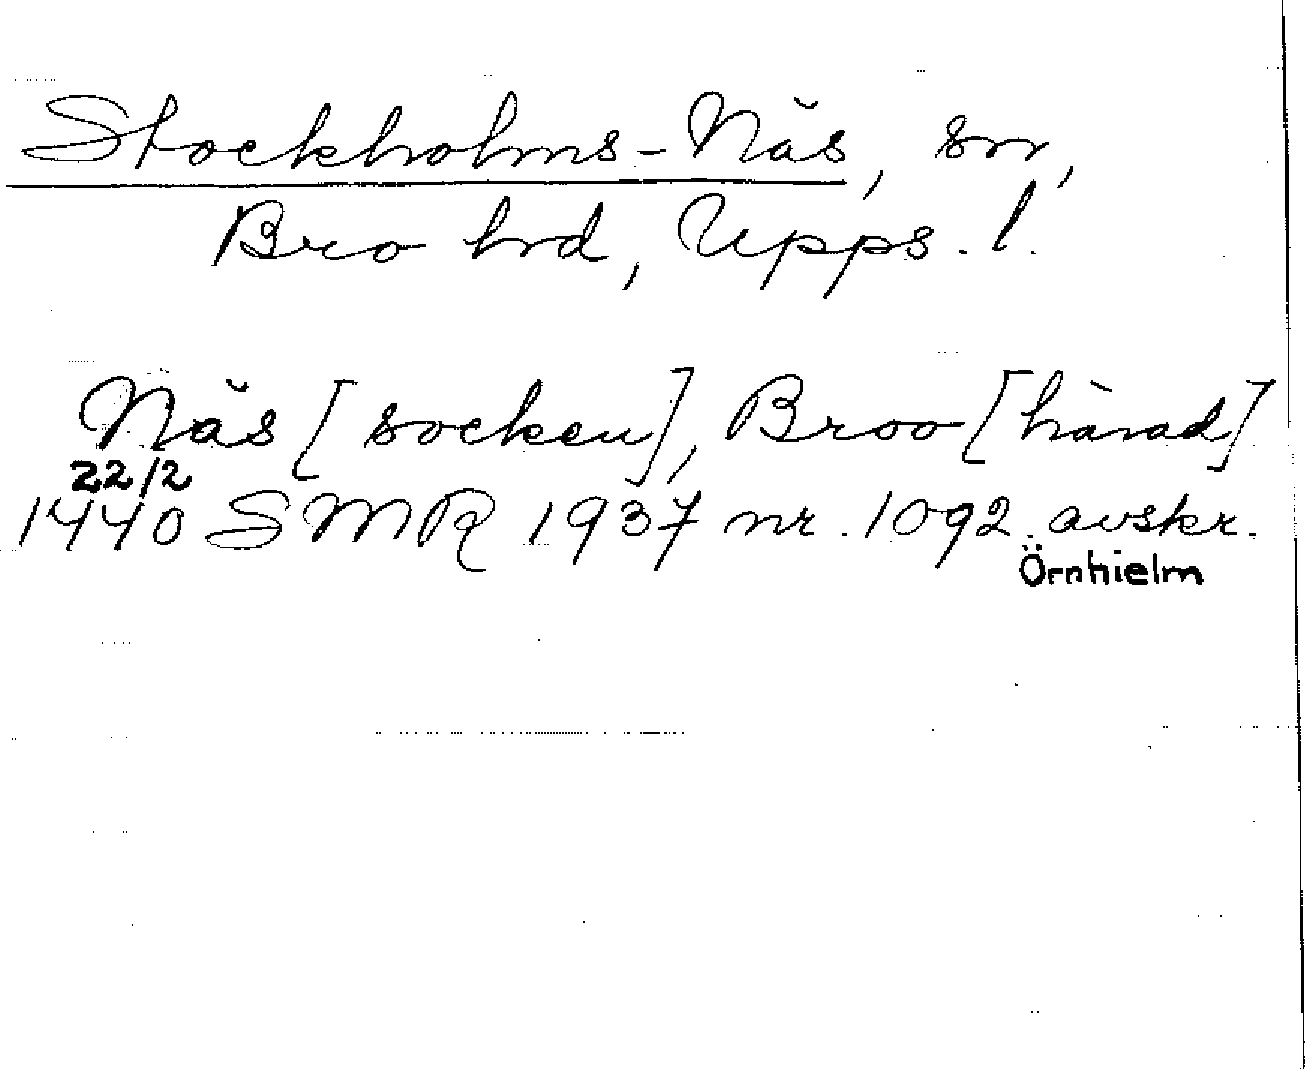 Stockholms-Näs, sn,
Bro hrd, Upps. l.
Näs [socken], Broo [härad]
22/2
1440 SMR 1937 nr. 1092. avskr.
Örnhielm